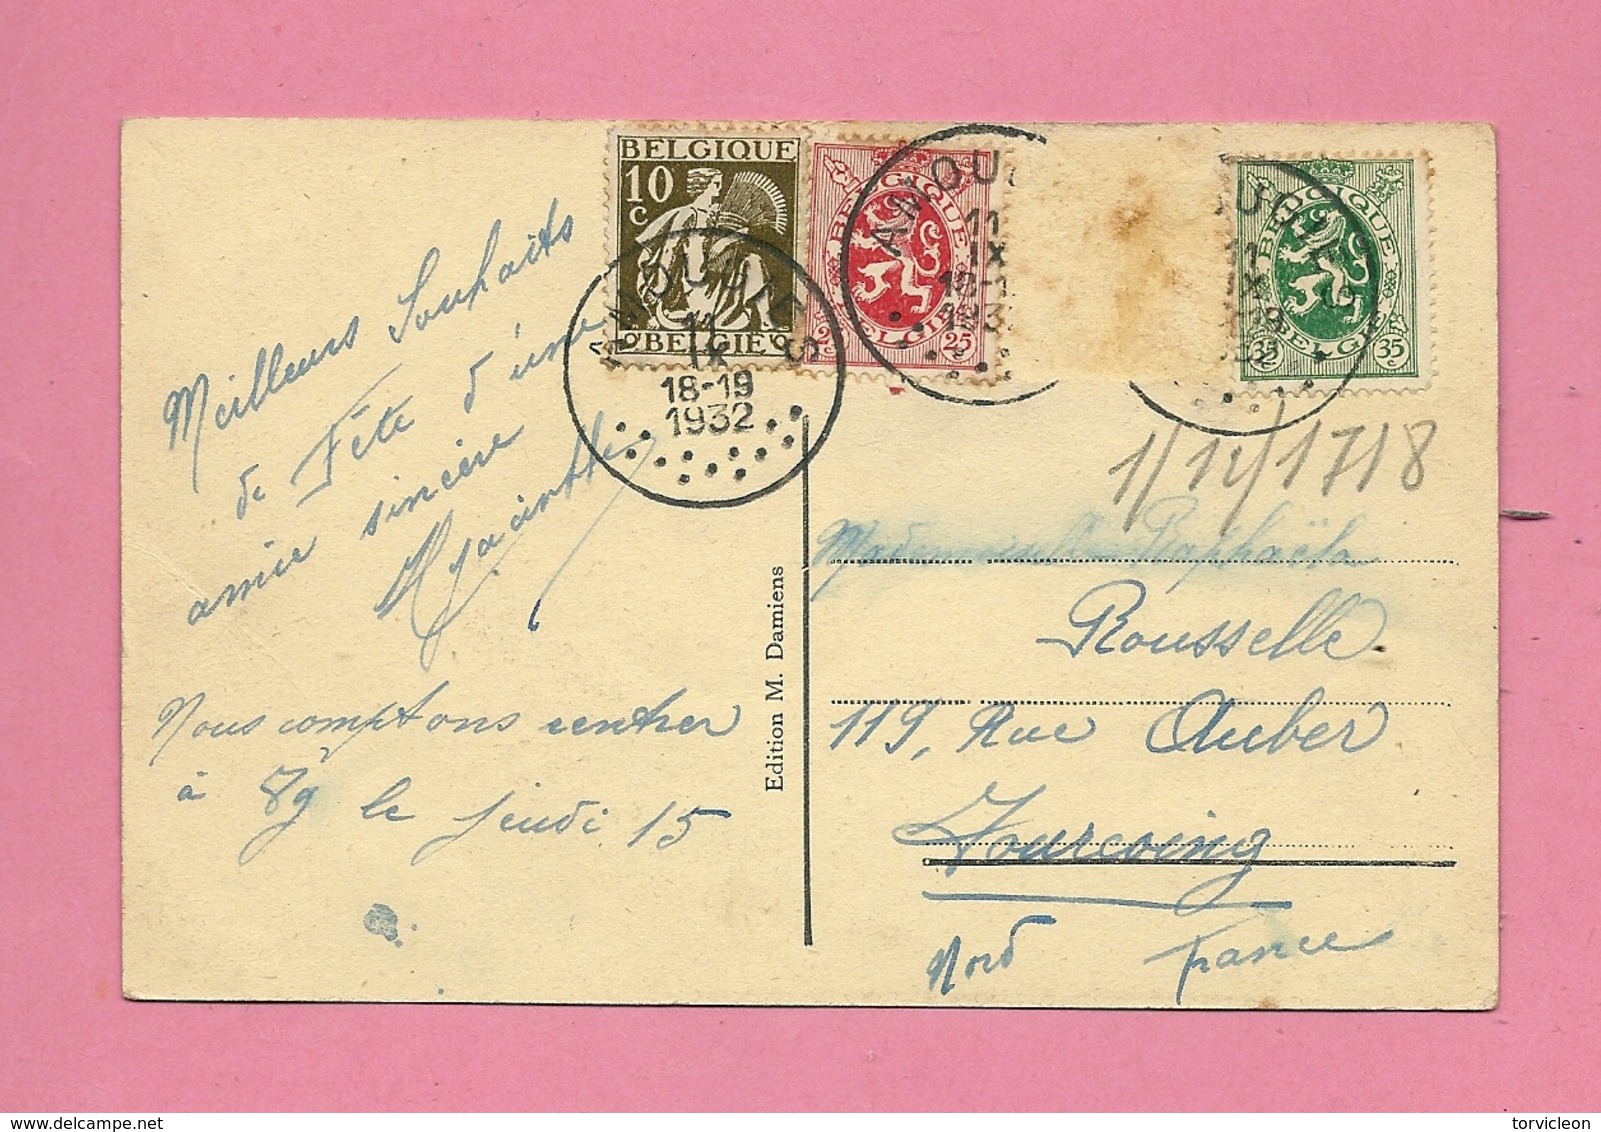 BELGIQUE
10
C
BELGIE
BELGIQUE
25
BELGIE
25
BELGIQUE
35
BELGIE
35
ANOUGIES
11
IX
18-19
1932
11
IX
18-1
193
11
IX
Meilleurs Souhaits
de Fête d'une
amie sincère
Hyacinthe
Nous comptons rentrer
à le jeudi 15
Edition M. Damiens
1/12/1718
Mademoiselle Raphaëla
Rousselle
119, Rue Auber
Tourcoing
Nord France
torvicleon